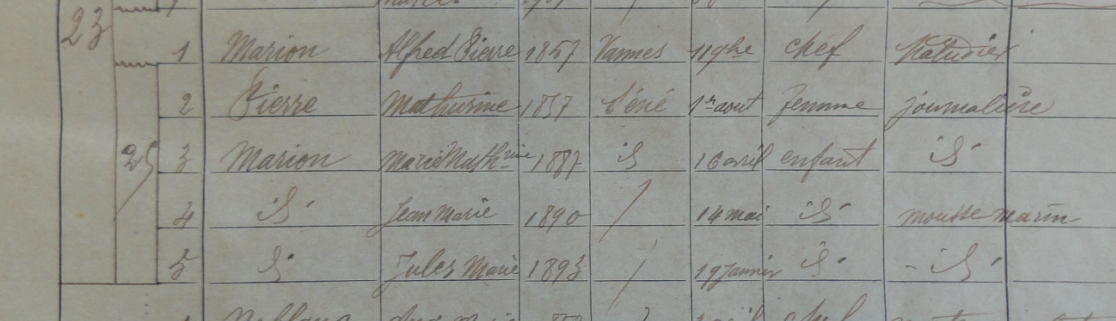 23
1 Marion Alfred Pierre 1857 Vannes 11 9bre chef
2 Pierre Mathurine 1857 Séné 1er aout femme journalière
25 3 Marion Marie Math-rine 1887 id 16 avril enfant id
4 id Jean Marie 1890 / 14 mai id mousse marin
5 id Jules Marie 1893 / 19 Janvier id id